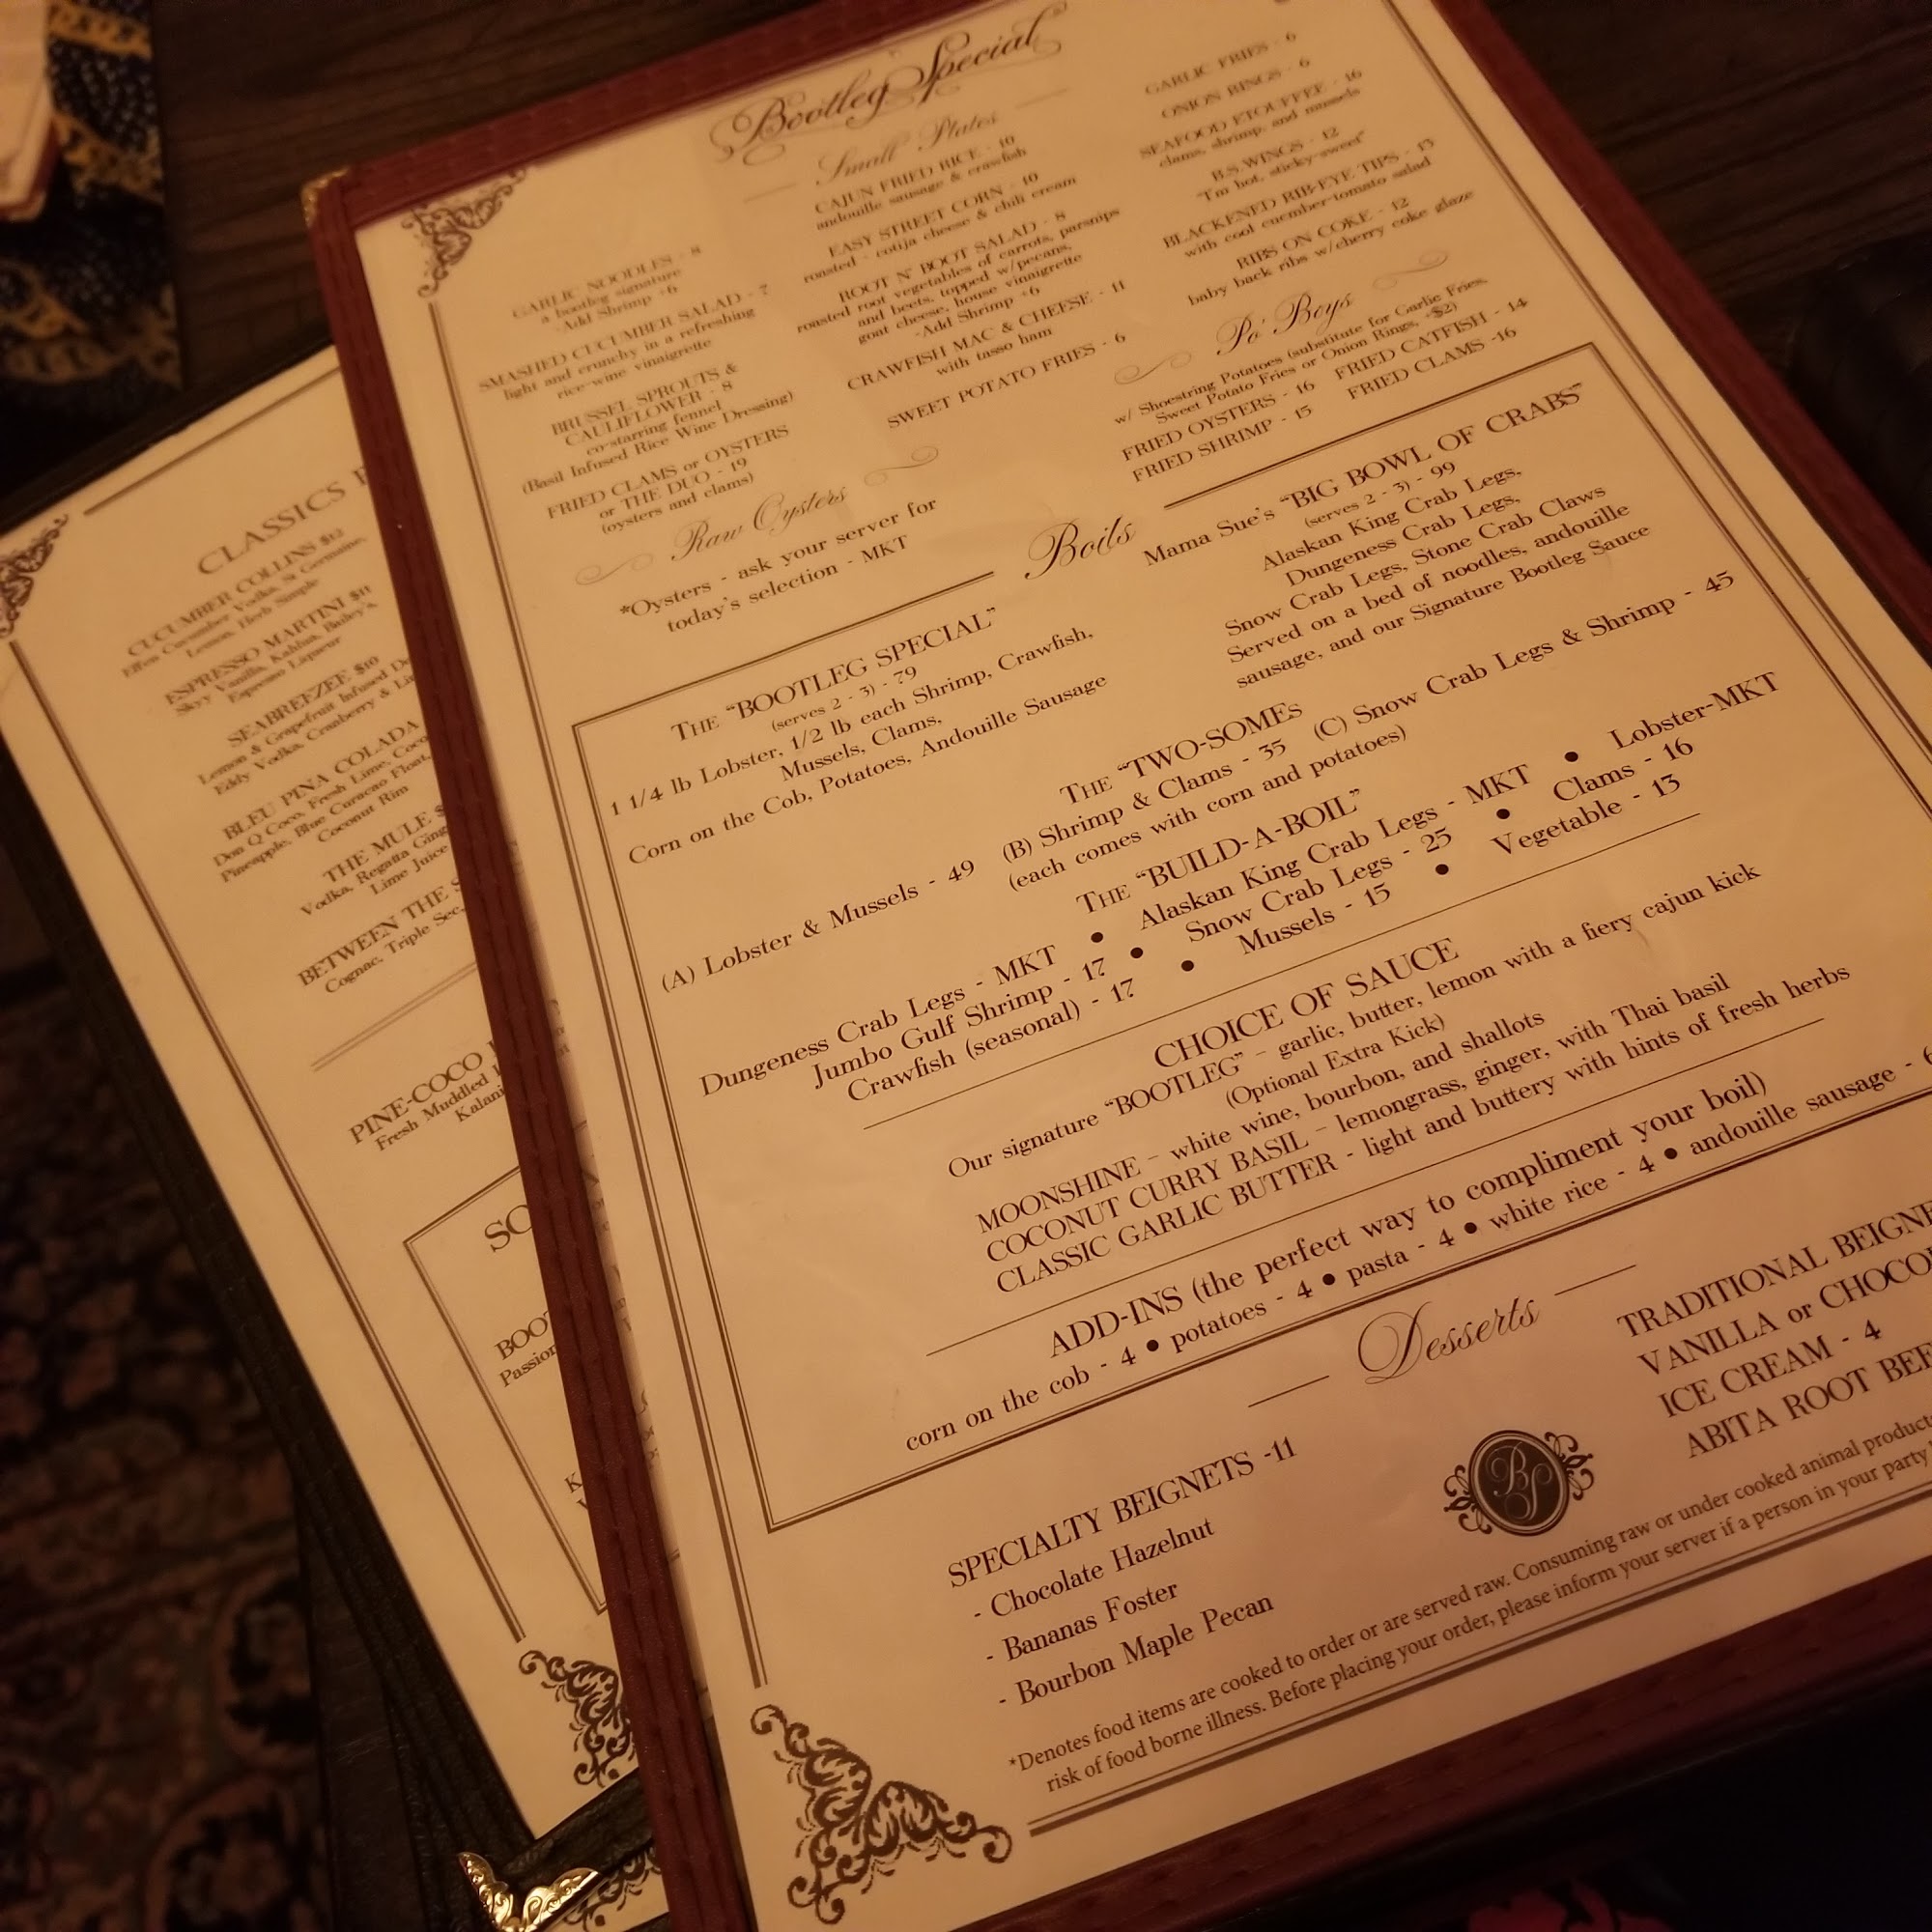 Bootleg Special
Small Plates
GARLIC NOODLES - 8
a bootleg signature
-Add Shrimp +6
SMASHED CUCUMBER SALAD - 7
light and crunchy in a refreshing
rice-wine vinaigrette
BRUSSEL SPROUTS &
CAULIFLOWER - 8
co-starring fennel
(Basil Infused Rice Wine Dressing)
FRIED CLAMS or OYSTERS
or THE DUO - 19
(oysters and clams)
CAJUN FRIED RICE - 10
andouille sausage & crawfish
EASY STREET CORN - 10
roasted - cotija cheese & chili cream
ROOT N' BOOT SALAD - 8
roasted root vegetables of carrots, parsnips
and beets, topped w/pecans,
goat cheese, house vinaigrette
-Add Shrimp +6
CRAWFISH MAC & CHEESE - 11
with tasso ham
SWEET POTATO FRIES - 6
GARLIC FRIES - 6
ONION RINGS - 6
SEAFOOD ETOUFFEE - 16
clams, shrimp, and mussels
B.S. WINGS - 12
"I'm hot, sticky-sweet"
BLACKENED RIB-EYE TIPS - 13
with cool cucumber-tomato salad
RIBS ON COKE - 12
baby back ribs w/cherry coke glaze
Raw Oysters
*Oysters - ask your server for
today's selection - MKT
Po' Boys
w/ Shoestring Potatoes (substitute for Garlic Fries,
Sweet Potato Fries or Onion Rings, +$2)
FRIED OYSTERS - 16 FRIED CATFISH - 14
FRIED SHRIMP - 15 FRIED CLAMS -16
Boils
THE "BOOTLEG SPECIAL"
(serves 2 - 3) - 79
1 1/4 lb Lobster, 1/2 lb each Shrimp, Crawfish,
Mussels, Clams,
Corn on the Cob, Potatoes, Andouille Sausage
Mama Sue's "BIG BOWL OF CRABS"
(serves 2 - 3) - 99
Alaskan King Crab Legs,
Dungeness Crab Legs,
Snow Crab Legs, Stone Crab Claws
Served on a bed of noodles, andouille
sausage, and our Signature Bootleg Sauce
THE "TWO-SOMES
(A) Lobster & Mussels - 49 (B) Shrimp & Clams - 35 (C) Snow Crab Legs & Shrimp - 45
(each comes with corn and potatoes)
THE "BUILD-A-BOIL"
Dungeness Crab Legs - MKT • Alaskan King Crab Legs - MKT • Lobster-MKT
Jumbo Gulf Shrimp - 17 • Snow Crab Legs - 25 • Clams - 16
Crawfish (seasonal) - 17 • Mussels - 15 • Vegetable - 13
CHOICE OF SAUCE
Our signature "BOOTLEG" – garlic, butter, lemon with a fiery cajun kick
(Optional Extra Kick)
MOONSHINE – white wine, bourbon, and shallots
COCONUT CURRY BASIL – lemongrass, ginger, with Thai basil
CLASSIC GARLIC BUTTER - light and buttery with hints of fresh herbs
ADD-INS (the perfect way to compliment your boil)
corn on the cob - 4 • potatoes - 4 • pasta - 4 • white rice - 4 • andouille sausage - 6
Desserts
SPECIALTY BEIGNETS -11
- Chocolate Hazelnut
- Bananas Foster
- Bourbon Maple Pecan
BS
TRADITIONAL BEIGNE
VANILLA or CHOCO
ICE CREAM - 4
ABITA ROOT BEE
*Denotes food items are cooked to order or are served raw. Consuming raw or under cooked animal product
risk of food borne illness. Before placing your order, please inform your server if a person in your party
CLASSICS
CUCUMBER COLLINS $12
Effen Cucumber Vodka, St Germaine,
Lemon, Herb Simple
ESPRESSO MARTINI $11
Skyy Vanilla, Kahlua, Bailey's,
Espresso Liqueur
SEABREEZEE $10
Lemon & Grapefruit Infused De
Eddy Vodka, Cranberry & Li
BLEU PINA COLADA
Don Q Coco, Fresh Lime, Coco
Pineapple, Blue Curacao Float,
Coconut Rim
THE MULE $
Vodka, Regatta Ging
Lime Juice
BETWEEN THE S
Cognac, Triple Sec,
PINE-COCO
Fresh Muddled
Kalani
SO
BOO
Passion
K